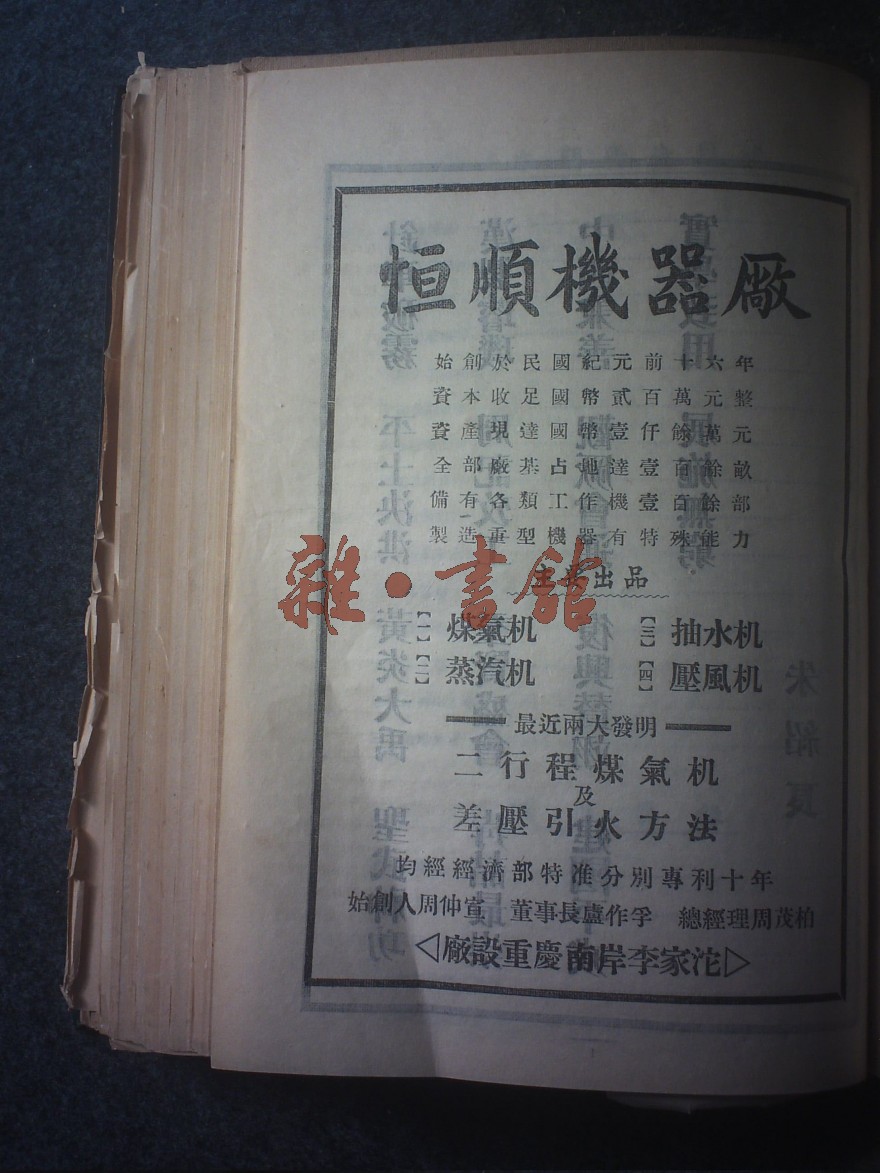 恒順機器廠
始創於民國紀元前十六年
資本收足國幣貳百萬元整
資產現達國幣壹仟餘萬元
全部廠基占地達壹百餘畝
備有各類工作機壹百餘部
製造重型機器有特殊能力
主要出品
雜·書館
【一】煤氣机 【三】抽水机
【二】蒸汽机 【四】壓風机
最近兩大發明
二行程煤氣机
及
差壓引火方法
均經經濟部特准分別專利十年
始創人周仲宣 董事長盧作孚 總經理周茂柏
◁廠設重慶南岸李家沱▷